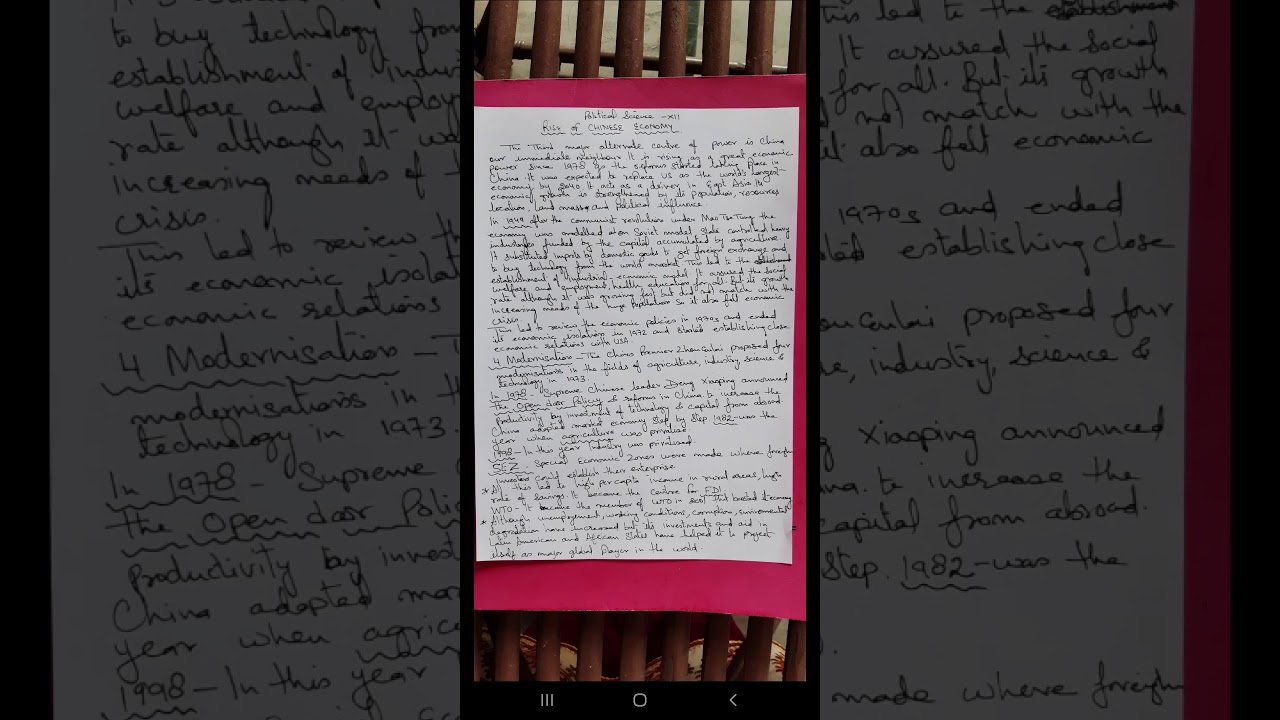 Political Science -XII
RISE OF CHINESE ECONOMY
The Third major alternate centre of power is China
our immediate neighbour. It is rising as a great economic
power since 1978 as the reforms started taking place in
China. It was expected to replace US as the world's largest
economy by 2040. It acts as a driver in East Asia. Its
economic growth is strengthened by its population, resources
location, land mass and political influence
In 1949 after the communist revolution under Mao Tse Tung the
economy was modelled on Soviet model, state controlled heavy
industries funded by the capital accumulated by agriculture.
It substituted imports by domestic goods to get foreign exchange and
to buy technology from the world market. This led to the
establishment of industrial economic model It assured the social
welfare and employment, health, education for all. But its growth
rate although it was growing fast but did not match with the
increasing needs of the huge population So it also felt economic
crisis.
This led to review the economic policies in 1970s and ended
its economic isolation in 1972 and started establishing close
economic relations with USA.
4 Modernisation - The China Premier Zhou Enlai proposed four
modernisations in the fields of agriculture, industry, science &
technology in 1973.
In 1978 - Supreme Chinese leader Deng Xiaoping announced
The Open door Policy & reforms in China. to increase the
Productivity by investment of technology & capital from abroad.
China adopted market economy step by step. 1982 - was the
year when agriculture was privatised
1998 - In this year Industry was privatised.
SEZ - Special Economic Zones were made where foreign
investors could establish their enterprise.
* All this led to high per capita income in rural areas, high
rate of savings. It became the centre for FDI.
WTO - It became the member of WTO in 2001 that boosted economy
* Although unemployement, working conditions, corruption, environmental
degradation have increased but its investments and aid in
Latin American and African states have helped it to project
itself as major global player in the world.